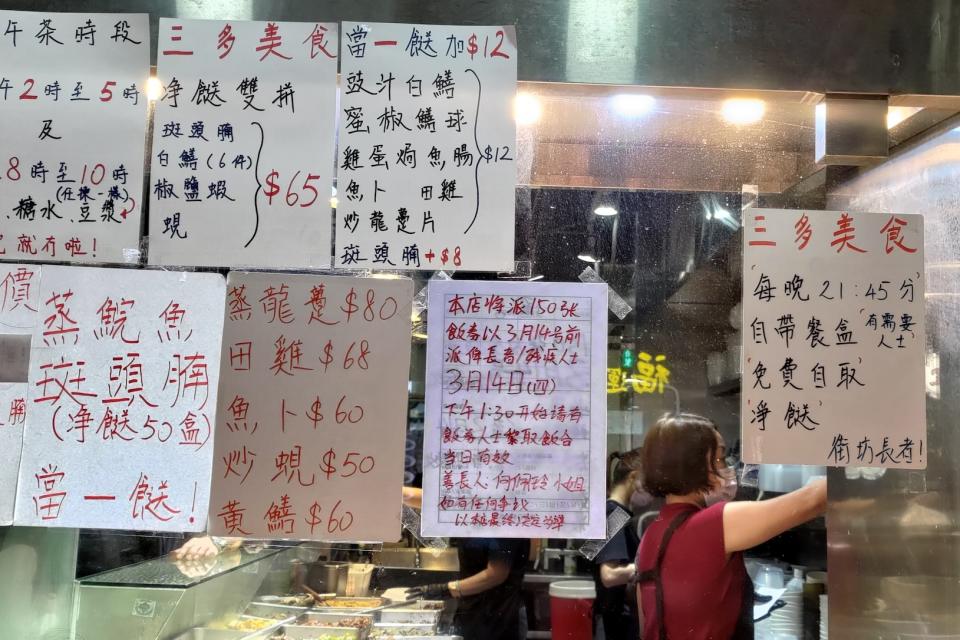 午茶時段
午2時至5時
及
8時至10時
(任揀一樣)
糖水、豆漿
就冇啦!
三多美食
净餸雙拼
斑頭腩
白鱔(6件)
椒鹽蝦
蜆
$65
當一餸加$12
豉汁白鱔
蜜椒鱔球
雞蛋焗魚腸
$12
魚卜 田雞
炒龍躉片
斑頭腩+$8
價
腩
蒸鯇魚
斑頭腩
(净餸50盒)
當一餸!
蒸龍躉$80
田雞$68
魚卜$60
炒蜆$50
黃鱔$60
本店將派150張
飯券以3月14號前
派俾長者/殘疾人士
3月14日(四)
下午1:30開始請有
飯券人士黎取飯合
當日有效
善長人:何佩玲小姐
如有任何爭議
福
三多美食
每晚21:45分
自帶餐盒"有需要
人士"
免費自取
净餸
街坊長者!